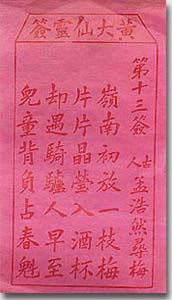 黃大仙靈簽
第十三簽
古人 孟浩然尋梅
嶺南初放一枝梅
片片晶瑩入酒杯
却遇騎驢人早至
兒童背負占春魁